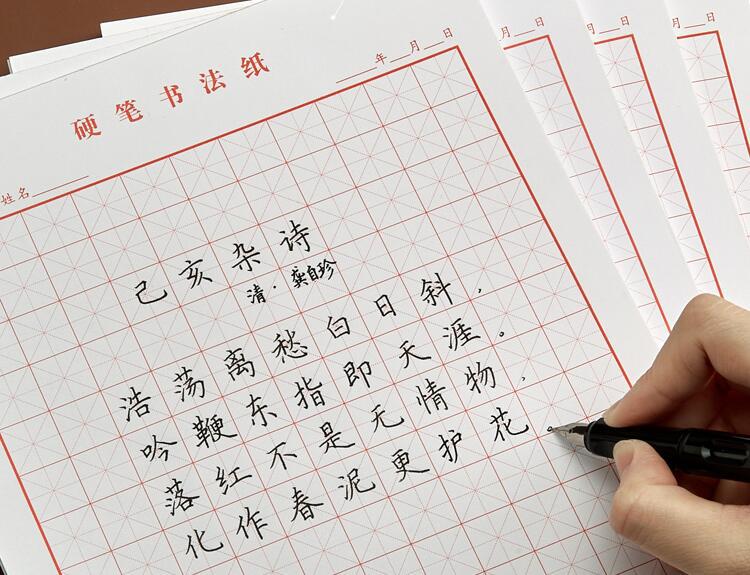 硬笔书法纸
年 月 日
姓名
己亥杂诗
清·龚自珍
浩荡离愁白日斜,
吟鞭东指即天涯。
落红不是无情物,
化作春泥更护花。
月 日
月 日
月 日